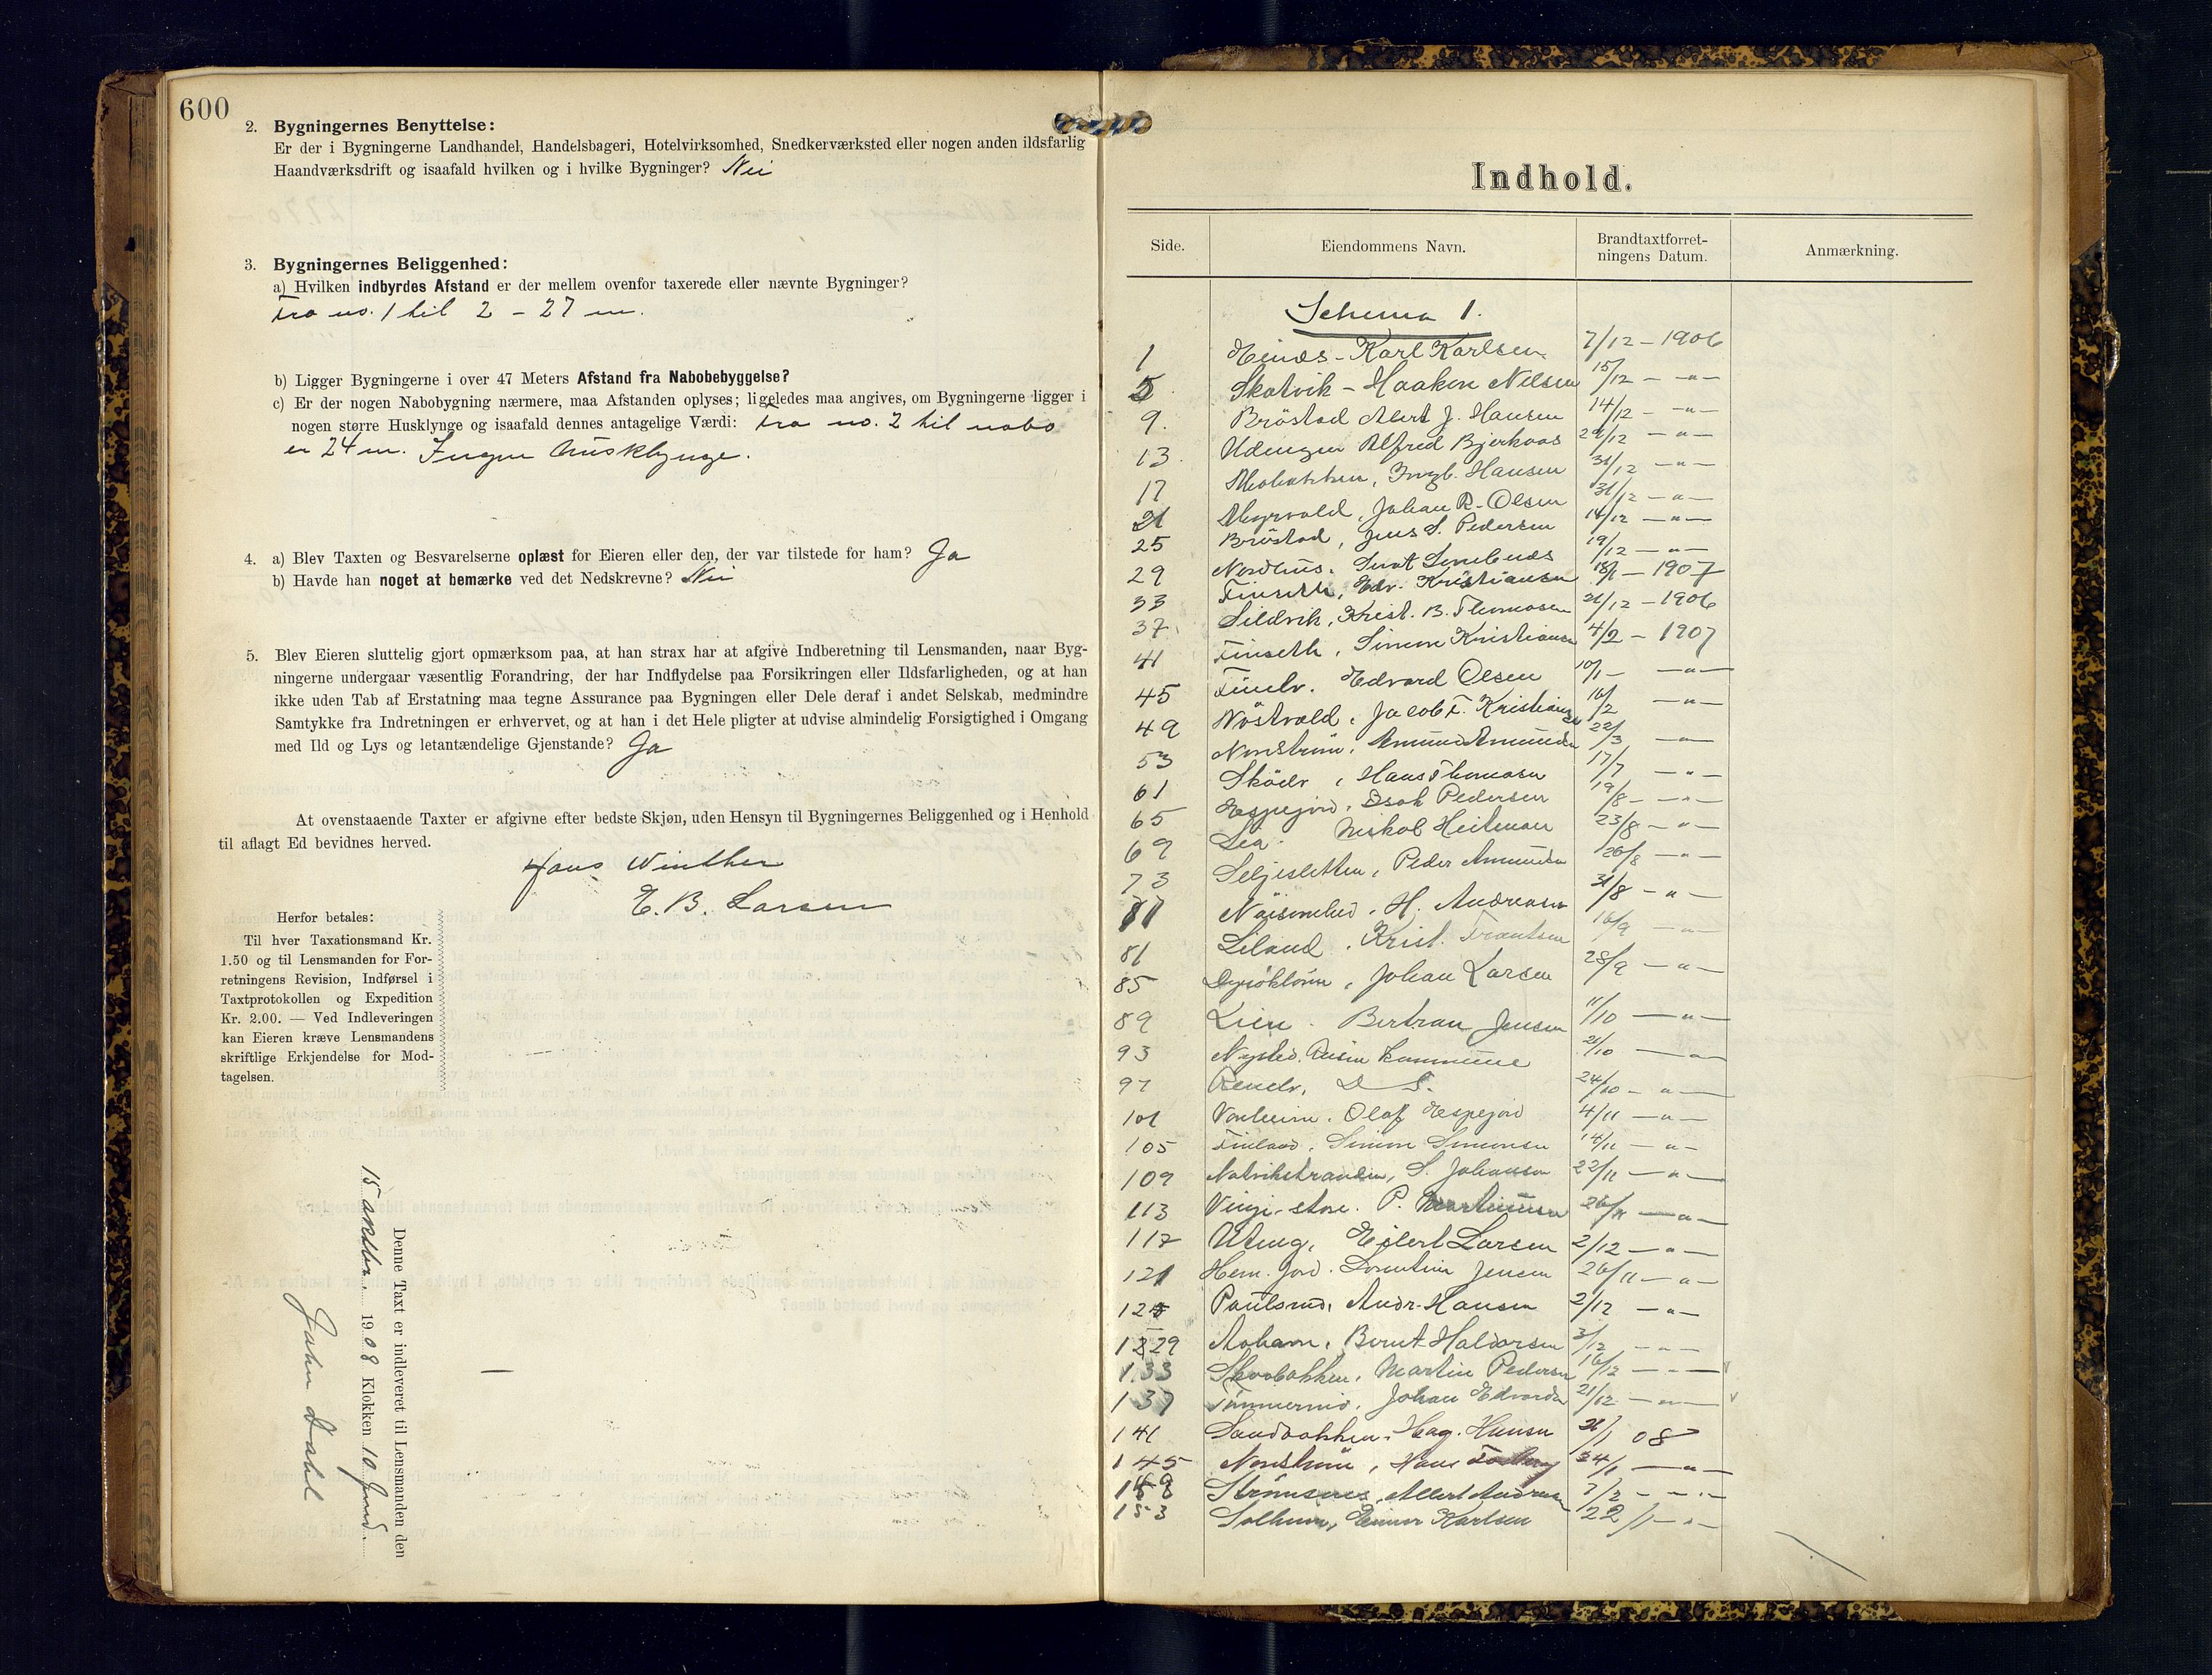 600
2. Bygningernes Benyttelse:
Er der i Bygningerne Landhandel, Handelsbageri, Hotelvirksomhed, Snedkerværksted eller nogen anden ildsfarlig
Haandværksdrift og isaafald hvilken og i hvilke Bygninger? Nei
3. Bygningernes Beliggenhed:
a) Hvilken indbyrdes Afstand er der mellem ovenfor taxerede eller nævnte Bygninger?
Fra no. 1 til 2 - 27 m.
b) Ligger Bygningerne i over 47 Meters Afstand fra Nabobebyggelse?
c) Er der nogen Nabobygning nærmere, maa Afstanden oplyses; ligeledes maa angives, om Bygningerne ligger i
nogen større Husklynge og isaafald dennes antagelige Værdi: Fra no. 2 til nabo
er 24 m. Ingen husklynge.
4. a) Blev Taxten og Besvarelserne oplæst for Eieren eller den, der var tilstede for ham? Ja
b) Havde han noget at bemærke ved det Nedskrevne? Nei
5. Blev Eieren sluttelig gjort opmærksom paa, at han strax har at afgive Indberetning til Lensmanden, naar Byg-
ningerne undergaar væsentlig Forandring, der har Indflydelse paa Forsikringen eller Ildsfarligheden, og at han
ikke uden Tab af Erstatning maa tegne Assurance paa Bygningen eller Dele deraf i andet Selskab, medmindre
Samtykke fra Indretningen er erhvervet, og at han i det Hele pligter at udvise almindelig Forsigtighed i Omgang
med Ild og Lys og letantændelige Gjenstande? Ja
At ovenstaaende Taxter er afgivne efter bedste Skjøn, uden Hensyn til Bygningernes Beliggenhed og i Henhold
til aflagt Ed bevidnes herved.
Hans Winther
E. B. Larsen
Herfor betales:
Til hver Taxationsmand Kr.
1.50 og til Lensmanden for For-
retningens Revision, Indførsel i
Taxtprotokollen og Expedition
Kr. 2.00. — Ved Indleveringen
kan Eieren kræve Lensmandens
skriftlige Erkjendelse for Mod-
tagelsen.
Denne Taxt er indleveret til Lensmanden den
15 oktbr. 1908 Klokken 10 form.
John Dahl
Indhold.
Side. Eiendommens Navn. Brandtaxtforret-
ningens Datum. Anmærkning.
Schema 1.
1 Karl Karlsen 7/12 - 1906
5 Skatvik - Haakon Nilsen 15/12 - " -
9. Bröstad Albert J. Hansen 14/12 - " -
13. Alfred Bjerkaas 29/12 - " -
17 Mobakken, Ingb. Hansen 31/12 - " -
21 Myrvold, Johan R. Olsen 31/12 - " -
25 Bröstad, Jens S. Pedersen 14/12 - " -
29 Nordhus. 19/12 - " -
33 Finseth, Edv. Kristiansen 18/1 - 1907
37 Sildvik, Krist. B. Thomasen 21/12 - 1906
41 Finseth, Simon Kristiansen 4/2 - 1907
45 Edvard Olsen 10/1 - " -
49 Nöstvold, Jacob F. Kristiansen 16/2 - " -
53 Nonström, 22/3 - " -
61 Hans Thomasen 17/7 - " -
65 Espejord, Isak Pedersen 19/8 - " -
69 Lea. Heitman 23/8 - " -
73 Seljesletten, Peder Amundsen 26/8 - " -
77 H. Andreasen 31/8 - " -
81 Liland, Krist. Frantsen 16/9 - " -
85 Johan Larsen 28/9 - " -
89 Lien. Bertran Jensen 11/10 - " -
93 Nysted. kommune 21/10 - " -
97 D S. 24/10 - " -
101 Olaf Espejord 4/11 - " -
105 Finland, Simon Simonsen 14/11 - " -
109 S. Johansen 22/11 - " -
113 P. Martinusen 26/11 - " -
117 Eilert Larsen 2/12 - " -
121 Jensen 26/11 - " -
125 Paulsrud, Andr. Hansen 2/12 - " -
129 Bernt Haldorsen 3/12 - " -
133 Martin Pedersen 16/12 - " -
137 Tömmermo, Johan Edvardsen 21/12 - " -
141 Sandbakken, Hag. Hansen 21/1 08
145 Nonström, Hans 24/1 - " -
149 Albert Andreasen 7/2 - " -
153 Solheim, Einar Karlsen 22/1 - " -